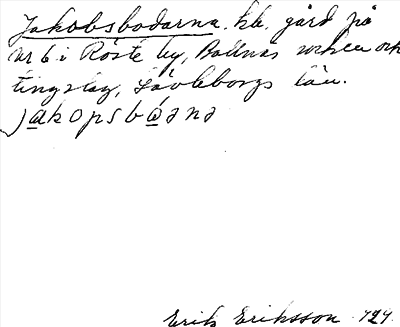 Jakobsbodarna. kb. gård på
nr 6 i Röste by, Bollnäs socken och
tingslag, Gävleborgs län.
jakopsbo̱ənə
Erik Eriksson 1924.